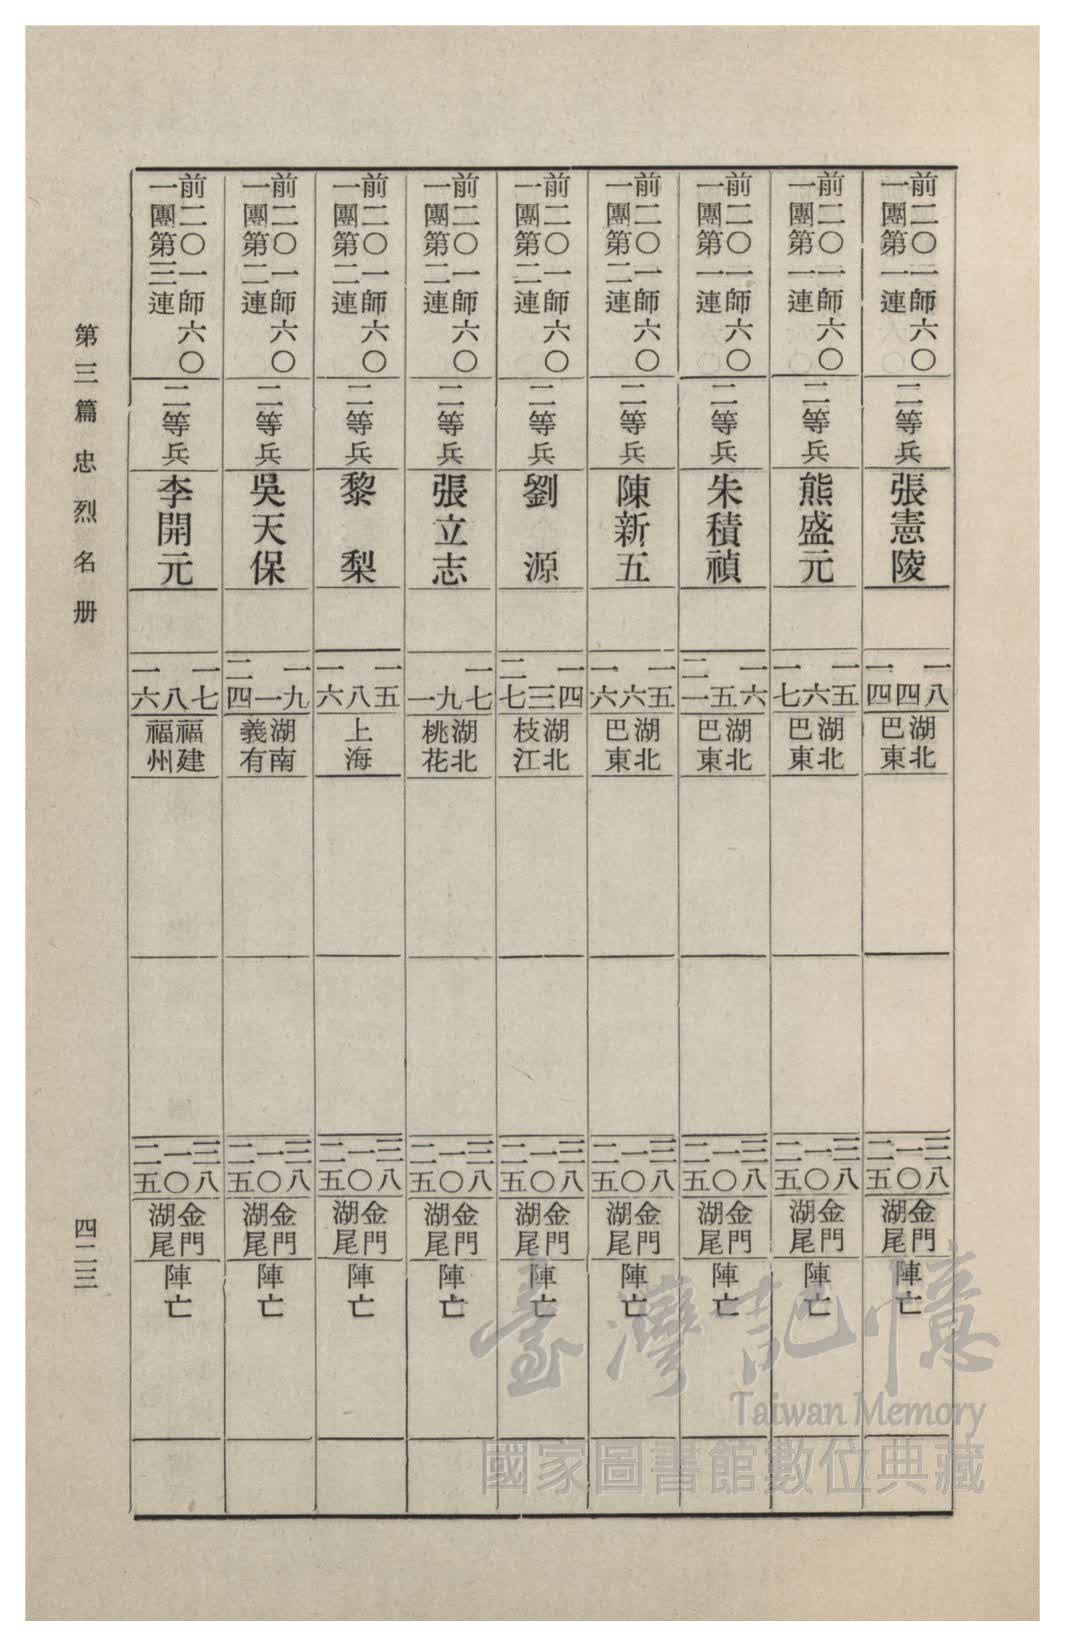 前二〇一師六〇
一團第一連
二等兵
張憲陵
一八 四 一四
湖北
巴東
三八 一〇 二五
金門
湖尾
陣亡
前二〇一師六〇
一團第一連
二等兵
熊盛元
一五 六 一七
湖北
巴東
三八 一〇 二五
金門
湖尾
陣亡
前二〇一師六〇
一團第一連
二等兵
朱積禎
一六 五 二一
湖北
巴東
三八 一〇 二五
金門
湖尾
陣亡
前二〇一師六〇
一團第二連
二等兵
陳新五
一五 六 一六
湖北
巴東
三八 一〇 二五
金門
湖尾
陣亡
前二〇一師六〇
一團第二連
二等兵
劉源
一四 三 二七
湖北
枝江
三八 一〇 二五
金門
湖尾
陣亡
前二〇一師六〇
一團第二連
二等兵
張立志
一七 九 一
湖北
桃花
三八 一〇 二五
金門
湖尾
陣亡
前二〇一師六〇
一團第二連
二等兵
黎梨
一五 八 一六
上海
三八 一〇 二五
金門
湖尾
陣亡
前二〇一師六〇
一團第二連
二等兵
吳天保
一九 一 二四
湖南
義有
三八 一〇 二五
金門
湖尾
陣亡
前二〇一師六〇
一團第三連
二等兵
李開元
一七 八 一六
福建
福州
三八 一〇 二五
金門
湖尾
陣亡
第三篇 忠烈名册
四二三
臺灣記憶
Taiwan Memory
國家圖書館數位典藏